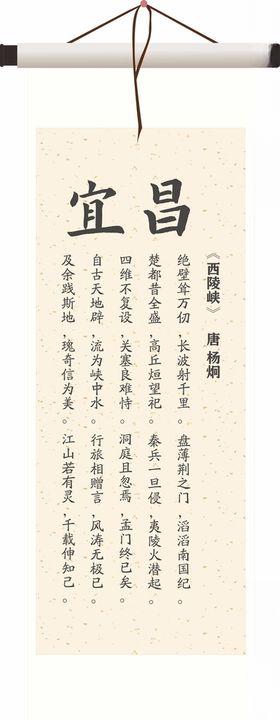 宜昌
《西陵峡》 唐 杨炯
绝壁耸万仞,长波射千里。盘薄荆之门,滔滔南国纪。
楚都昔全盛,高丘烜望祀。秦兵一旦侵,夷陵火潜起。
四维不复设,关塞良难恃。洞庭且忽焉,孟门终已矣。
自古天地辟,流为峡中水。行旅相赠言,风涛无极已。
及余践斯地,瑰奇信为美。江山若有灵,千载伸知己。